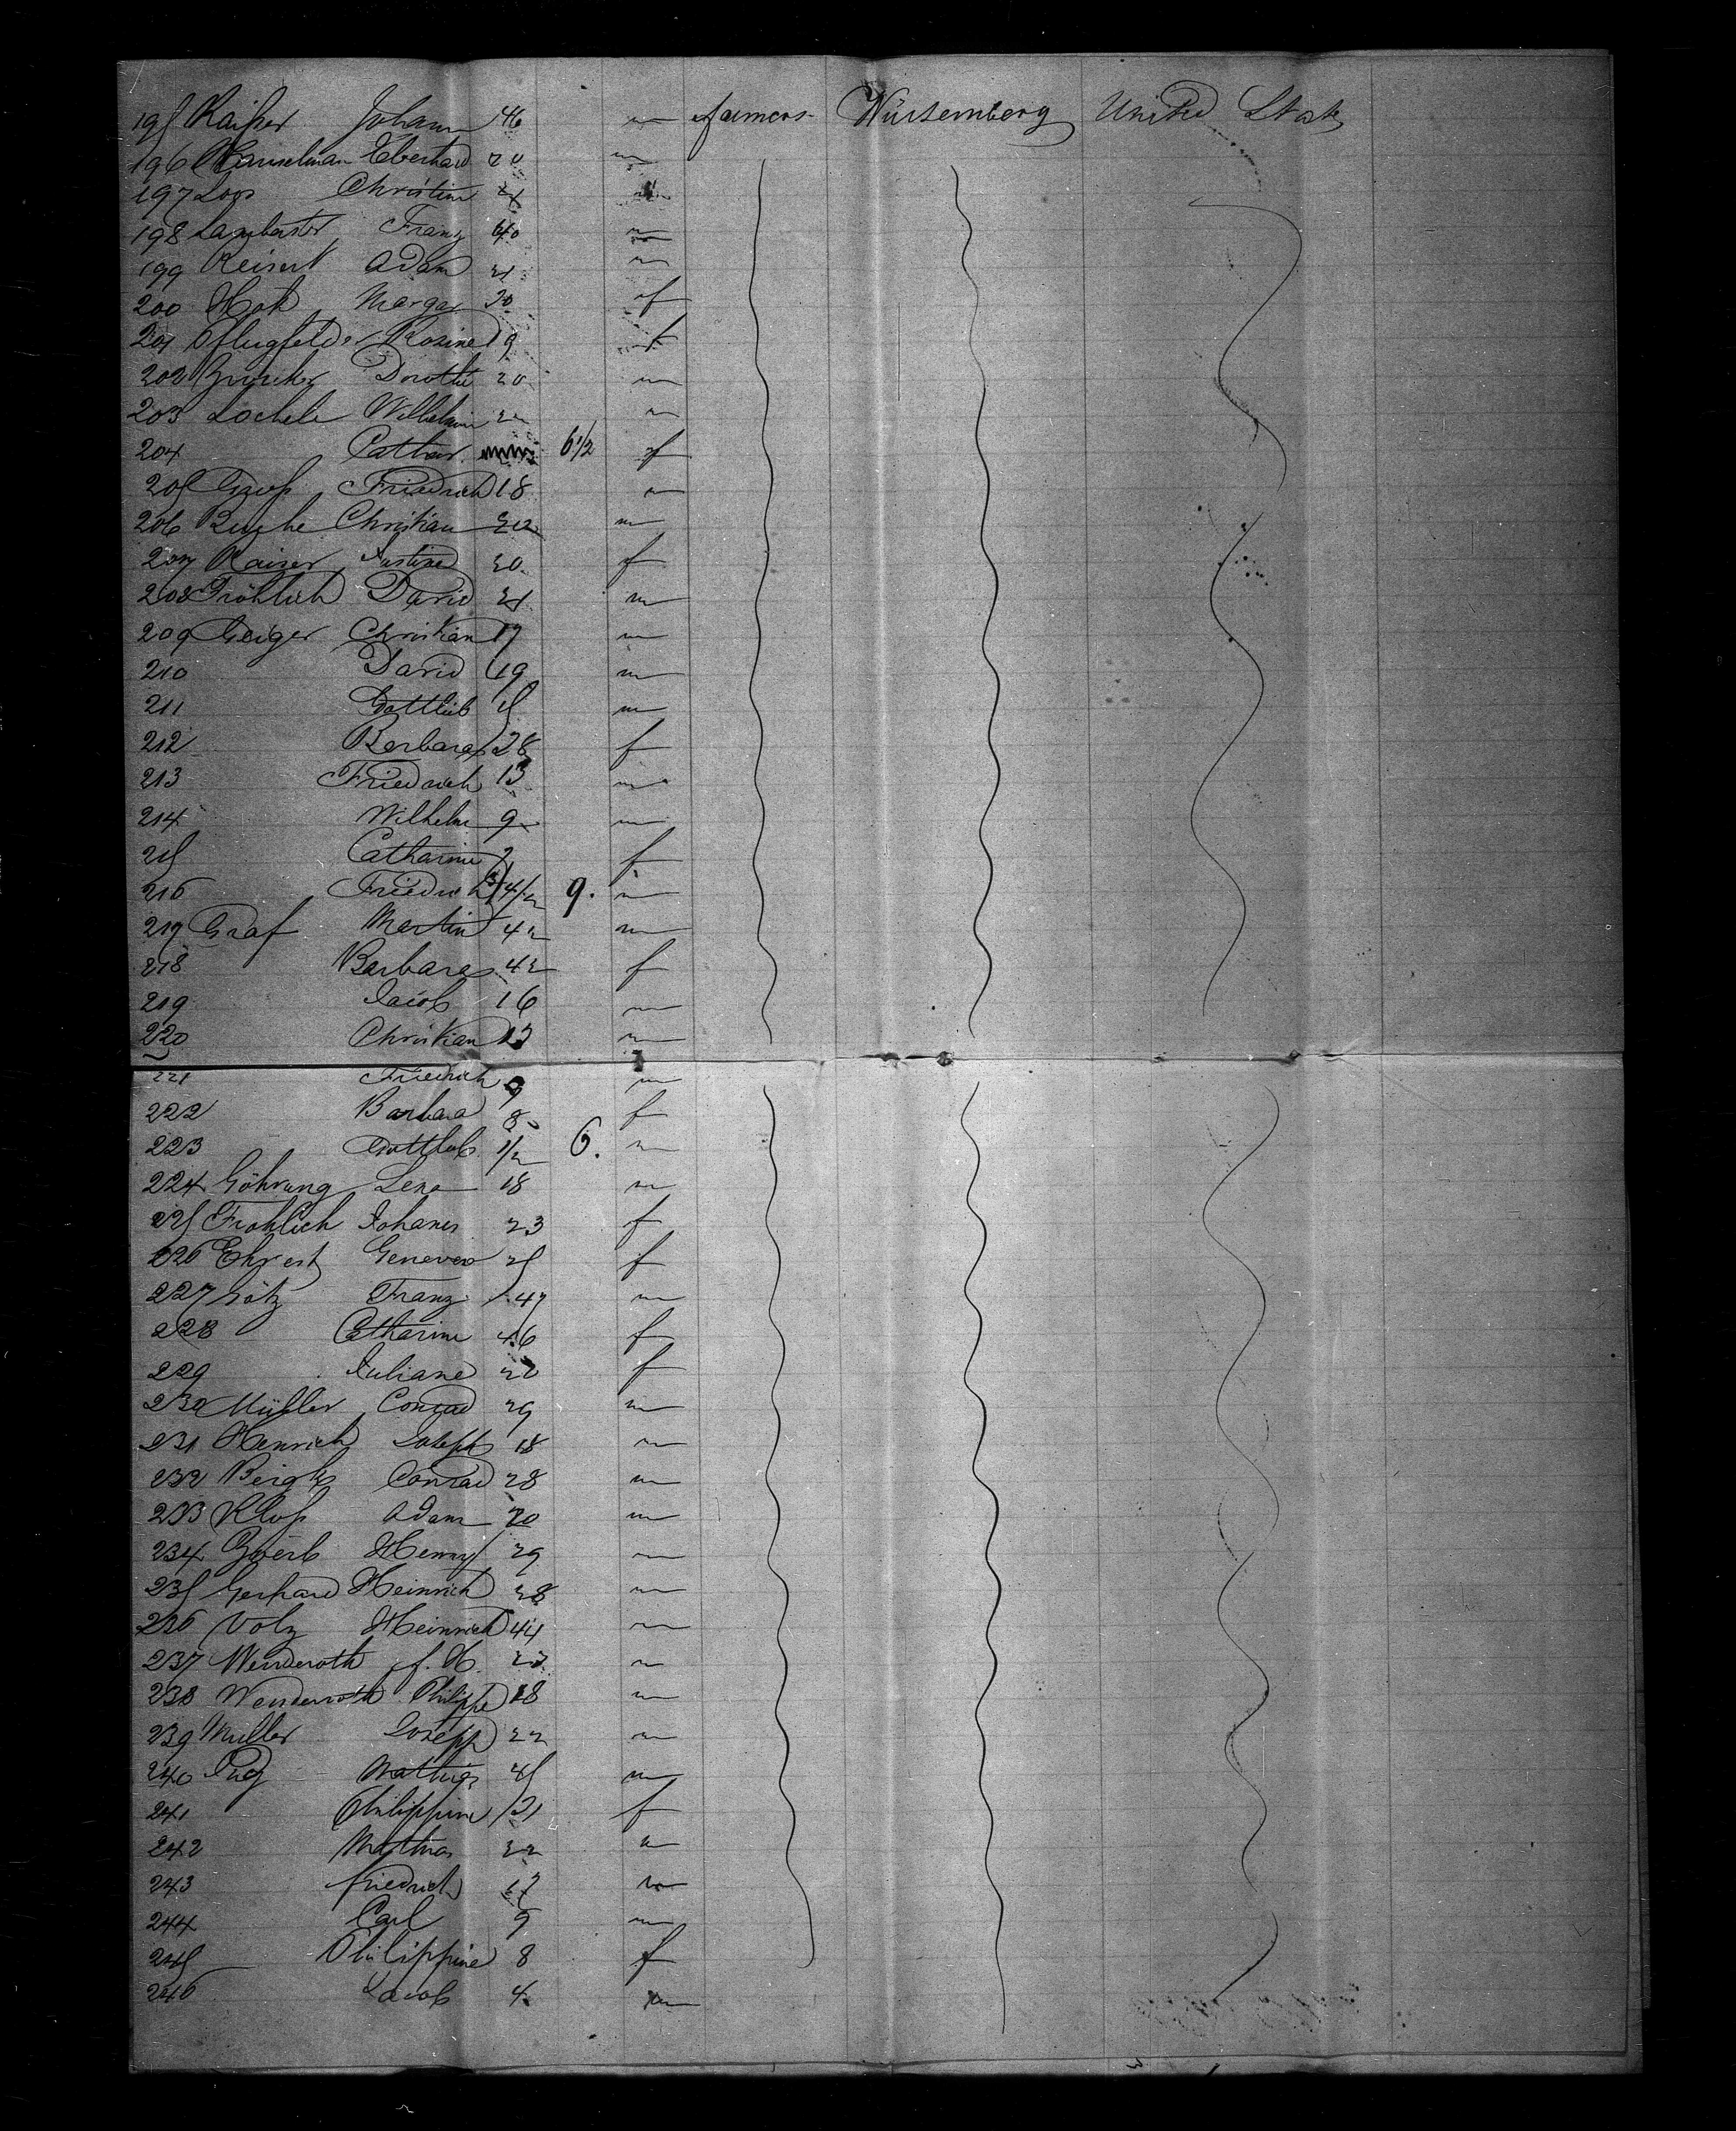 195 Kaißer Johann 46 m farmers Würtemberg United State
196 Hanselman Eberhard 20 m
197 Loos Christine 21 m
198 Franz 40 m
199 Reisert Adam 21 m
200 Hok Margar 20 f
201 Pflugfelder Rosine 19 f
202 Dorothe 20 m
203 Lochele Wilhelmine 22 m
204 Cathar. 6 1/2 f
205 Groß Friedrich 18 m
206 Christian 22 m
207 Kaiser Justine 20 f
208 Fröhlich David 21 m
209 Geiger Christian 17 m
210 David 19 m
211 Gottlieb 15 m
212 Barbara 28 f
213 Friedrich 13 m
214 Wilhelm 9 m
215 Catharine 7 f
216 Friedrich 9. m
217 Graf Martin 42 m
218 Barbara 42 f
219 Jacob 16 m
220 Christian m
221 Friedrich 9 m
222 Barbara 8 f
223 Gottlob 1/2 6. m
224 Göhrung Lena 18 m
225 Frohlich Johanes 23 f
226 Genevev 25 f
227 Götz Franz 47 m
228 Catharine 46 f
229 Juliane 20 f
230 Müller Conrad 29 m
231 Henrich Joseph 18 m
232 Conrad 28 m
233 Kloß Adam 20 m
234 Henry 29 m
235 Gerhard Heinrich 28 m
236 Volz Heinrich 44 m
237 Wenderoth J. H. m
238 Wenderoth Philippe 18 m
239 Muller Joseph 22 m
240 Mathias 45 m
241 Philippine 21 f
242 Mathias 22 m
243 friedrich 17 m
244 Carl 9 m
245 Philippine 8 f
246 Jacob 4 m